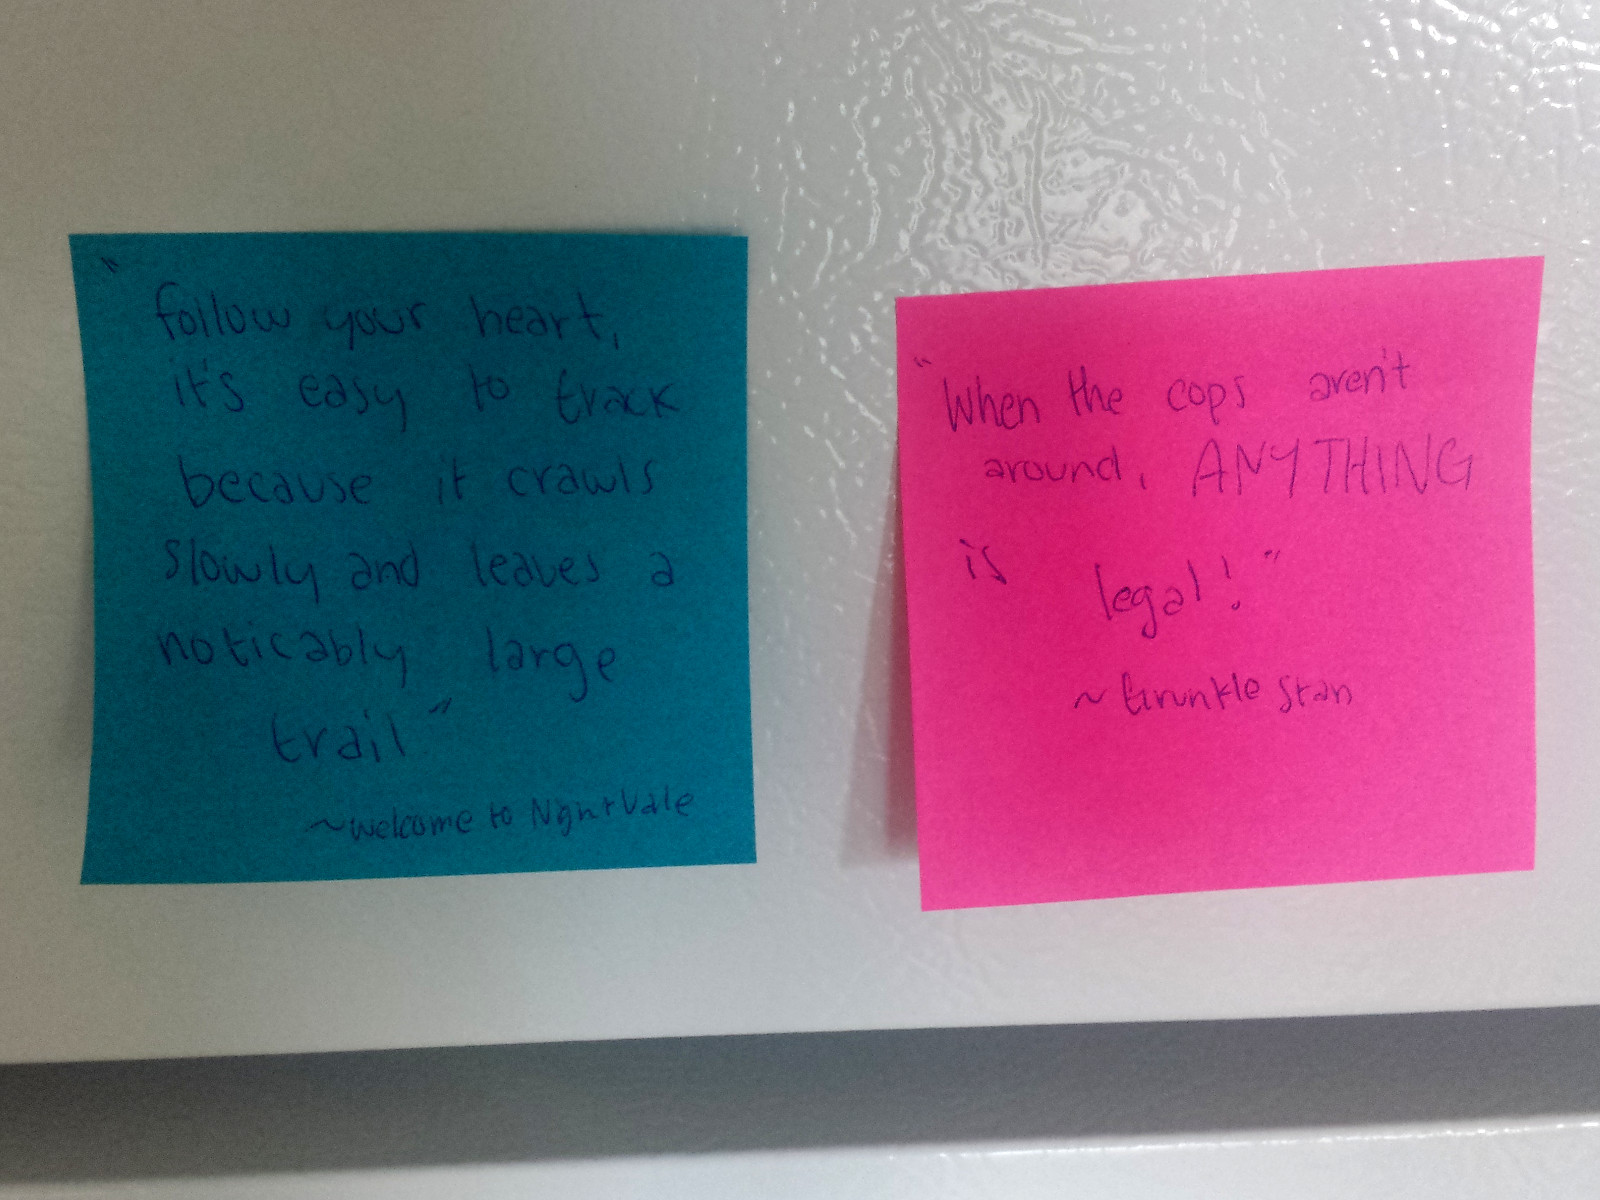 "follow your heart,
it's easy to track
because it crawls
slowly and leaves a
noticably large
trail"
~Welcome to NightVale
"When the cops aren't
around, ANYTHING
is legal!"
~Grunkle Stan